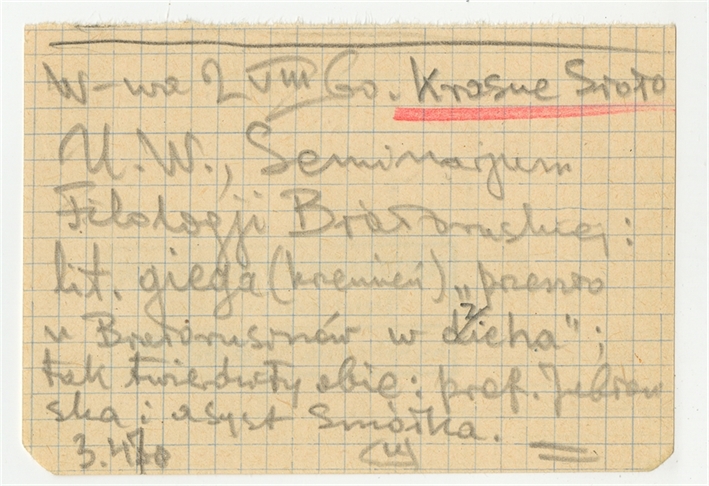 W-wa 2 VIII 60. Krasne Sioło
U. W., Seminarjum
Filologji Białoruskiej:
lit. giega (kremień) „przeszło
u Białorusinów w dzieha";
tak twierdziły obie: prof.
ska i asyst Smółka.